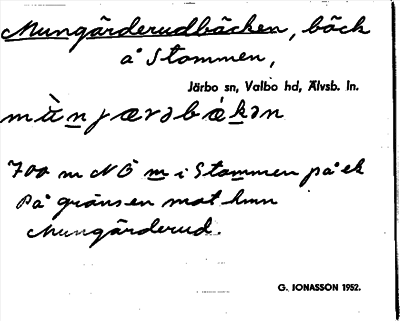 Mungärderudbäcken, bäck
å Stommen,
Järbo sn, Valbo hd, Älvsb. ln.
mùnjærəbákən
700 m NÖ m i Stommen på ek
På gränsen mot hmn
Mungärderud.
G. JONASSON 1952.